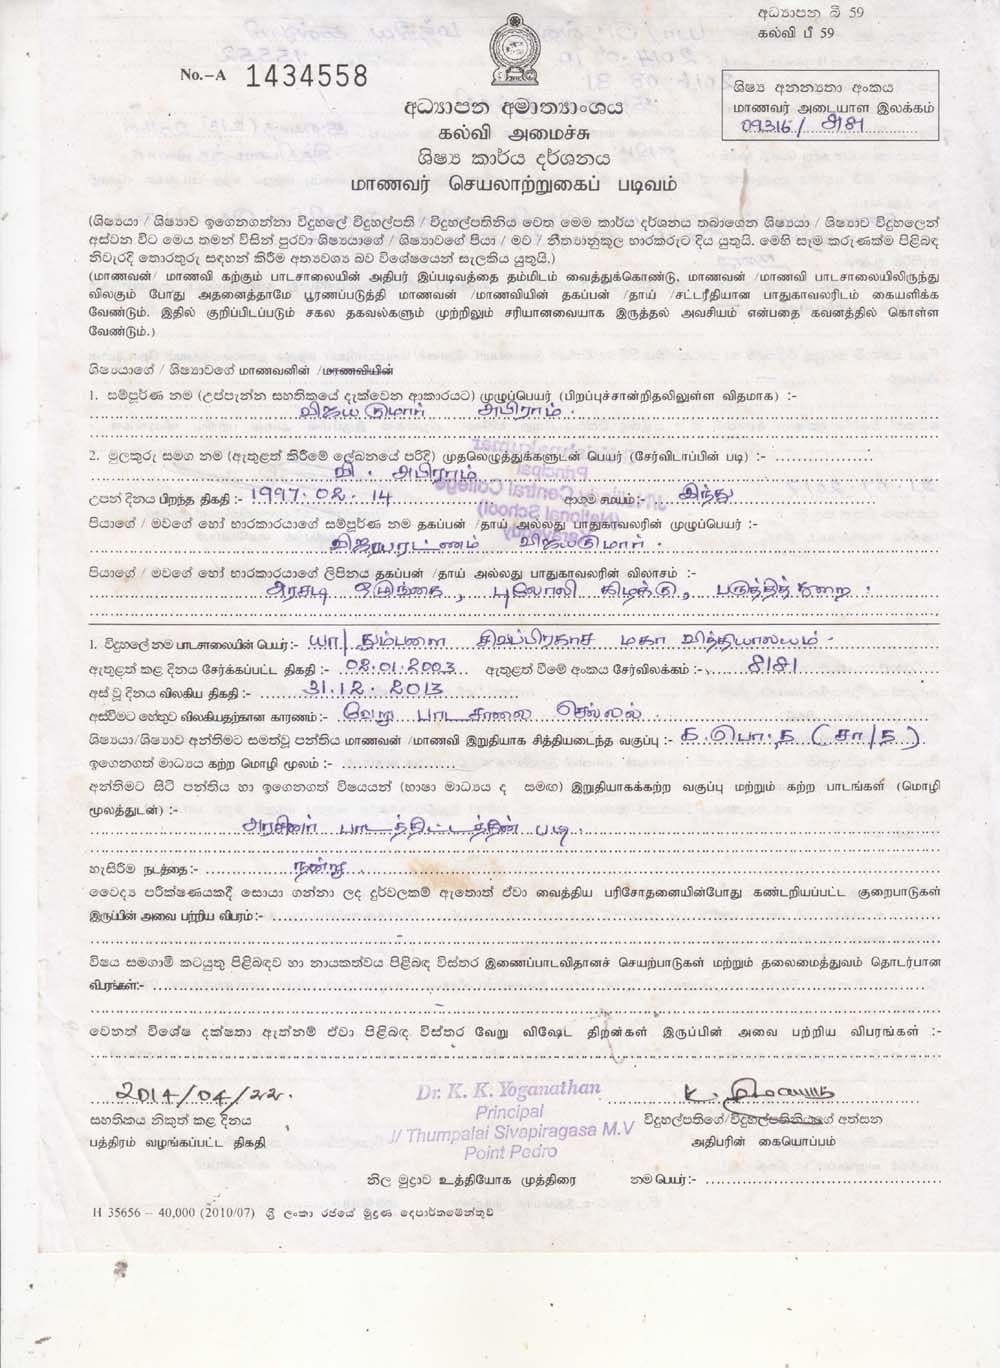 අධ්‍යාපන බී 59
கல்வி பீ 59
No.–A 1434558
ශිෂ්‍ය අනන්‍යතා අංකය
மாணவர் அடையாள இலக்கம்
09316/ 8181
අධ්‍යාපන අමාත්‍යාංශය
கல்வி அமைச்சு
ශිෂ්‍ය කාර්ය දර්ශනය
மாணவர் செயலாற்றுகைப் படிவம்
(ශිෂ්‍යයා / ශිෂ්‍යාව ඉගෙනගන්නා විදුහලේ විදුහල්පති / විදුහල්පතිනිය වෙත මෙම කාර්ය දර්ශනය තබාගෙන ශිෂ්‍යයා / ශිෂ්‍යාව විදුහලෙන්
අස්වන විට මෙය තමන් විසින් පුරවා ශිෂ්‍යයාගේ / ශිෂ්‍යාවගේ පියා / මව / නීත්‍යානුකූල භාරකරුට දිය යුතුයි. මෙහි සෑම කරුණක්ම පිළිබඳ
නිවැරදි තොරතුරු සඳහන් කිරීම අත්‍යවශ්‍ය බව විශේෂයෙන් සැලකිය යුතුයි.)
(மாணவன்/ மாணவி கற்கும் பாடசாலையின் அதிபர் இப்படிவத்தை தம்மிடம் வைத்துக்கொண்டு, மாணவன் /மாணவி பாடசாலையிலிருந்து
விலகும் போது அதனைத்தாமே பூரணப்படுத்தி மாணவன் /மாணவியின் தகப்பன் /தாய் /சட்டரீதியான பாதுகாவலரிடம் கையளிக்க
வேண்டும். இதில் குறிப்பிடப்படும் சகல தகவல்களும் முற்றிலும் சரியானவையாக இருத்தல் அவசியம் என்பதை கவனத்தில் கொள்ள
வேண்டும்.)
ශිෂ්‍යයාගේ / ශිෂ්‍යාවගේ மாணவனின் /மாணவியின்
1. සම්පූර්ණ නම (උප්පැන්න සහතිකයේ දැක්වෙන ආකාරයට) முழுப்பெயர் (பிறப்புச்சான்றிதலிலுள்ள விதமாக) :-
விஜயகுமார் அபிராம்.
2. මුලකුරු සමග නම (ඇතුළත් කිරීමේ ලේඛනයේ පරිදි) முதலெழுத்துக்களுடன் பெயர் (சேர்விடாப்பின் படி) :-
வி. அபிராம்
උපන් දිනය பிறந்த திகதி :- 1997. 02. 14 ආගම சமயம் :- இந்து
පියාගේ / මවගේ හෝ භාරකාරයාගේ සම්පූර්ණ නම தகப்பன் /தாய் அல்லது பாதுகாவலரின் முழுப்பெயர் :-
விஜயரட்ணம் விஜயகுமார்.
පියාගේ / මවගේ හෝ භාරකාරයාගේ ලිපිනය தகப்பன் /தாய் அல்லது பாதுகாவலரின் விலாசம் :-
அரசடி , புலோலி கிழக்கு, பருத்தித்துறை.
1. විදුහලේ නම பாடசாலையின் பெயர்:- யா/ தும்பளை சிவப்பிரகாச மகா வித்தியாலயம்.
ඇතුළත් කළ දිනය சேர்க்கப்பட்ட திகதி :- 02.01.2003 ඇතුළත් වීමේ අංකය சேர்விலக்கம் :- 8181
අස් වූ දිනය விலகிய திகதி :- 31.12. 2013
අස්වීමට හේතුව விலகியதற்கான காரணம்:- வேறு பாடசாலை செல்லல்.
ශිෂ්‍යයා/ශිෂ්‍යාව අන්තිමට සමත්වූ පන්තිය மாணவன் /மாணவி இறுதியாக சித்தியடைந்த வகுப்பு :- க.பொ.த (சா/த)
ඉගෙනගත් මාධ්‍යය கற்ற மொழி மூலம் :-
අන්තිමට සිටි පන්තිය හා ඉගෙනගත් විෂයයන් (භාෂා මාධ්‍යය ද සමඟ) இறுதியாகக்கற்ற வகுப்பு மற்றும் கற்ற பாடங்கள் (மொழி
மூலத்துடன்) :-
அரசினர் பாடத்திட்டத்தின் படி.
හැසිරීම நடத்தை:- நன்று.
වෛද්‍ය පරීක්ෂණයකදී සොයා ගන්නා ලද දුර්වලකම් ඇතොත් ඒවා வைத்திய பரிசோதனையின்போது கண்டறியப்பட்ட குறைபாடுகள்
இருப்பின் அவை பற்றிய விபரம்:-
විෂය සමගාමී කටයුතු පිළිබඳව හා නායකත්වය පිළිබඳ විස්තර இணைப்பாடவிதானச் செயற்பாடுகள் மற்றும் தலைமைத்துவம் தொடர்பான
விபரங்கள்:-
වෙනත් විශේෂ දක්ෂතා ඇත්නම් ඒවා පිළිබඳ විස්තර வேறு விஷேட திறன்கள் இருப்பின் அவை பற்றிய விபரங்கள் :-
2014/04/22.
සහතිකය නිකුත් කළ දිනය
பத்திரம் வழங்கப்பட்ட திகதி
Dr. K. K. Yoganathan
Principal
J/ Thumpalai Sivapiragasa M.V
Point Pedro
නිල මුද්‍රාව உத்தியோக முத்திரை
විදුහල්පතිගේ/විදුහල්පතිනියගේ අත්සන
அதிபரின் கையொப்பம்
නම பெயர்:-
H 35656 – 40,000 (2010/07) ශ්‍රී ලංකා රජයේ මුද්‍රණ දෙපාර්තමේන්තුව